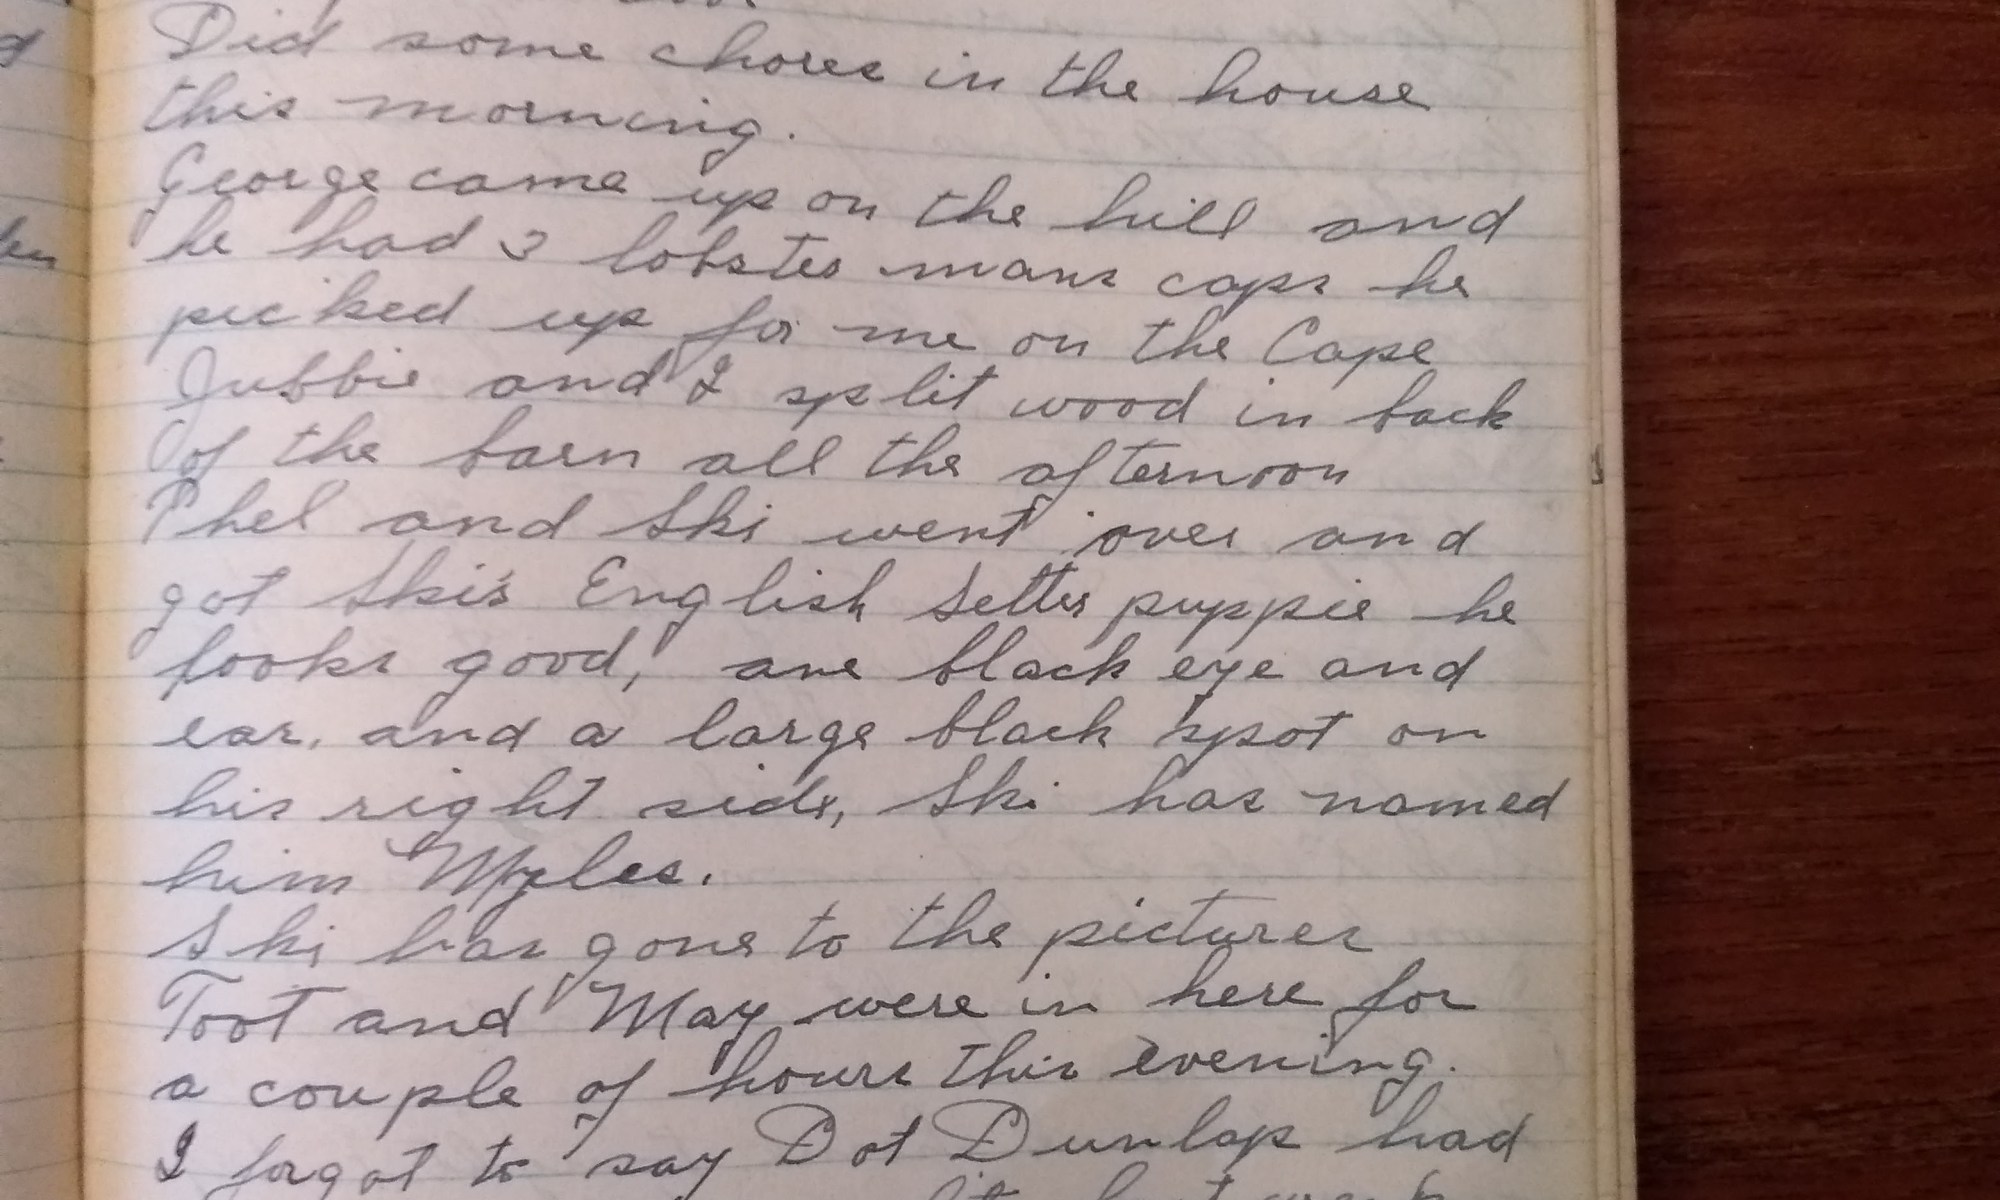 Did some chores in the house
this morning.
George came up on the hill and
he had 3 lobster mans caps he
picked up for me on the Cape
Jubbie and I split wood in back
of the barn all the afternoon
Phel and Ski went over and
got Ski's English Setter puppie he
looks good, one black eye and
ear, and a large black spot on
his right side, Ski has named
him Myles.
Ski has gone to the pictures
Toot and May were in here for
a couple of hours this evening.
I forgot to say Dot Dunlap had